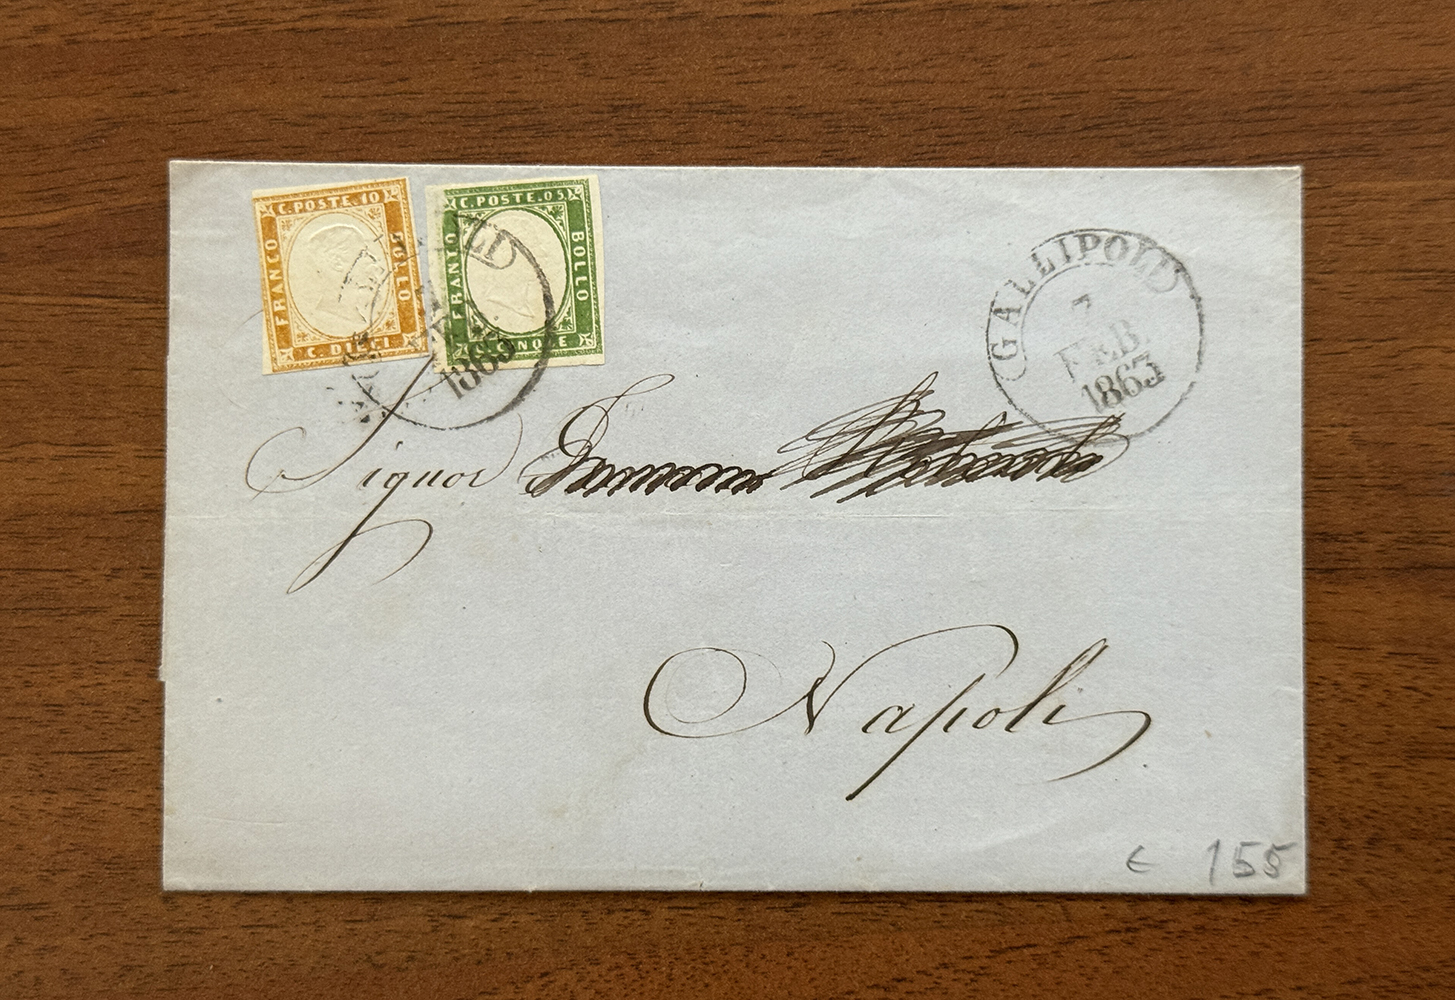 C. POSTE. 10
FRANCO
BOLLO
C. DIECI
C. POSTE. 05
FRANCO
BOLLO
C. CINQUE
1863
GALLIPOLI
7
FEB
1863
Signor
Napoli
€ 155